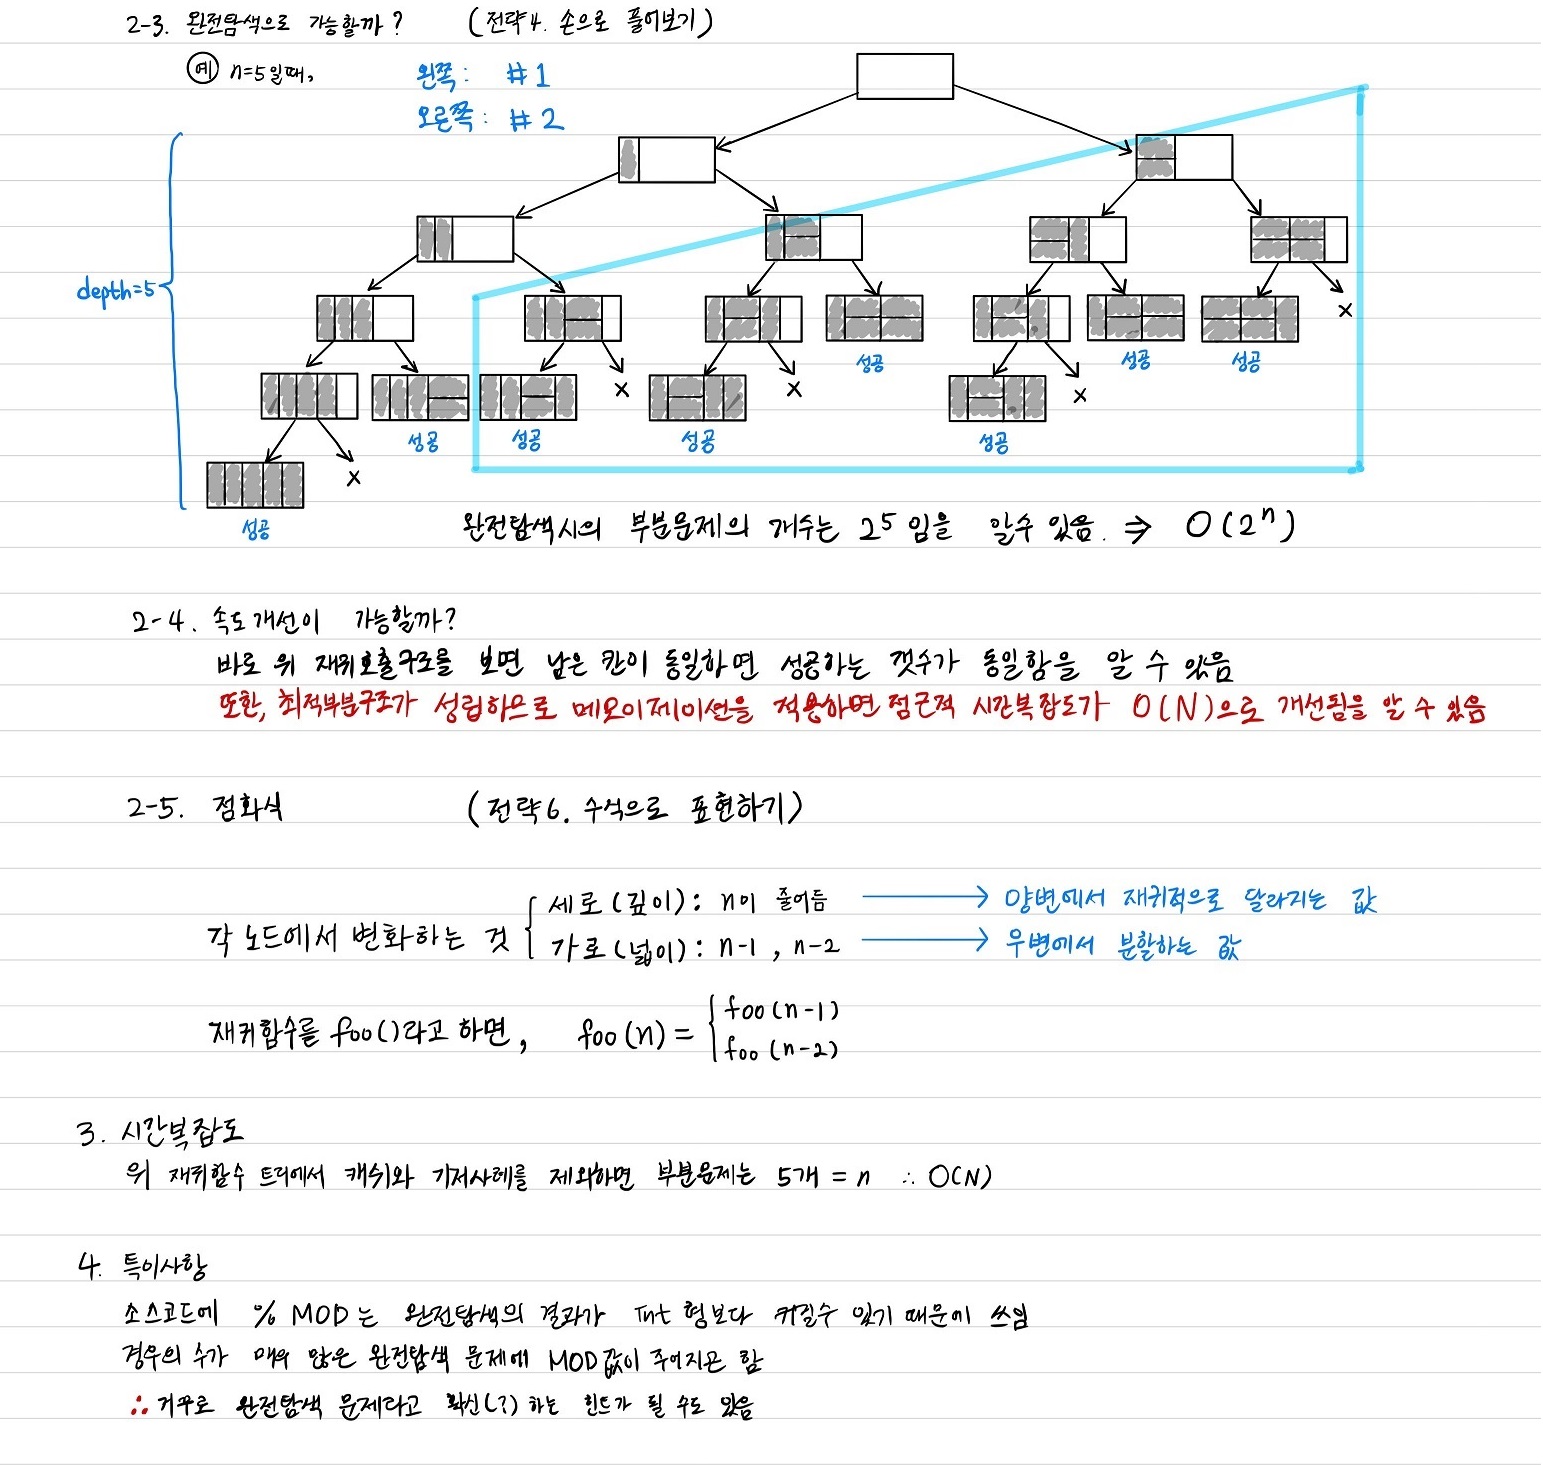 2-3. 완전탐색으로 가능할까? (전략4. 손으로 풀어보기)
예 n=5일때,
왼쪽: #1
오른쪽: #2
depth=5
성공 성공 성공
성공 성공 성공 성공
성공
x
x x x
x
완전탐색시의 부분문제의 개수는 2⁵ 임을 알수 있음. ⇒ O(2ⁿ)
2-4. 속도개선이 가능할까?
바로 위 재귀호출구조를 보면 남은 칸이 동일하면 성공하는 갯수가 동일함을 알 수 있음
또한, 최적부분구조가 성립하므로 메모이제이션을 적용하면 점근적 시간복잡도가 O(N)으로 개선됨을 알 수 있음
2-5. 점화식 (전략6. 수식으로 표현하기)
각 노드에서 변화하는 것
세로(깊이): n이 줄어듬 → 양변에서 재귀적으로 달라지는 값
가로(넓이): n-1, n-2 → 우변에서 분할하는 값
재귀함수를 foo()라고 하면, foo(n) = { foo(n-1)
foo(n-2)
3. 시간복잡도
위 재귀함수 트리에서 캐쉬와 기저사례를 제외하면 부분문제는 5개 = n ∴ O(N)
4. 특이사항
소스코드에 % MOD는 완전탐색의 결과가 int 형보다 커질수 있기 때문에 쓰임
경우의 수가 매우 많은 완전탐색 문제에 MOD값이 주어지곤 함
∴ 거꾸로 완전탐색 문제라고 확신(?)하는 힌트가 될 수도 있음